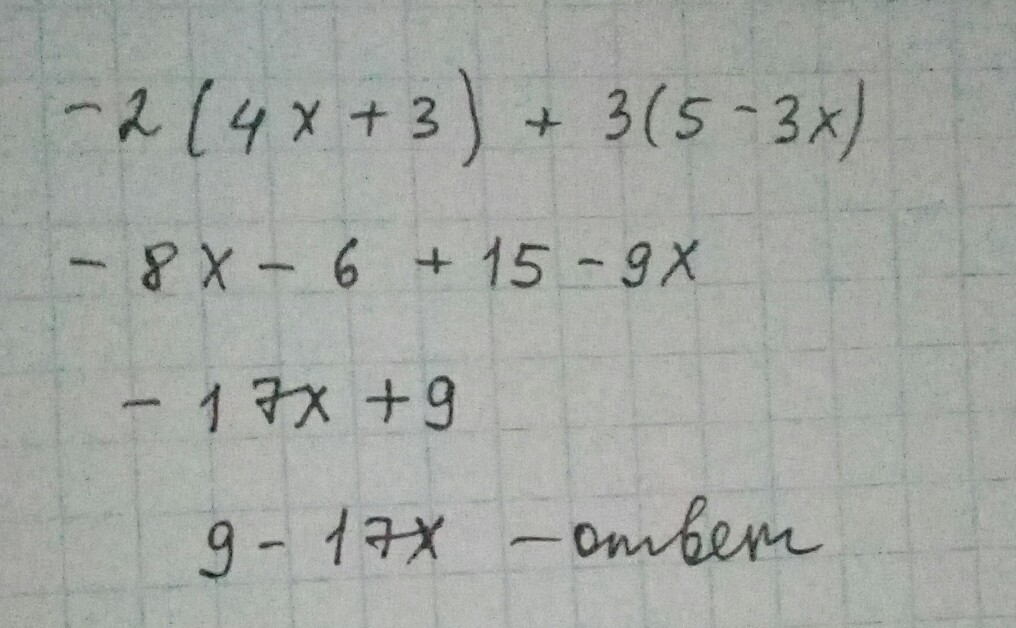 -2(4x+3) + 3(5-3x)
-8x-6+15-9x
-17x+9
9-17x - ответ